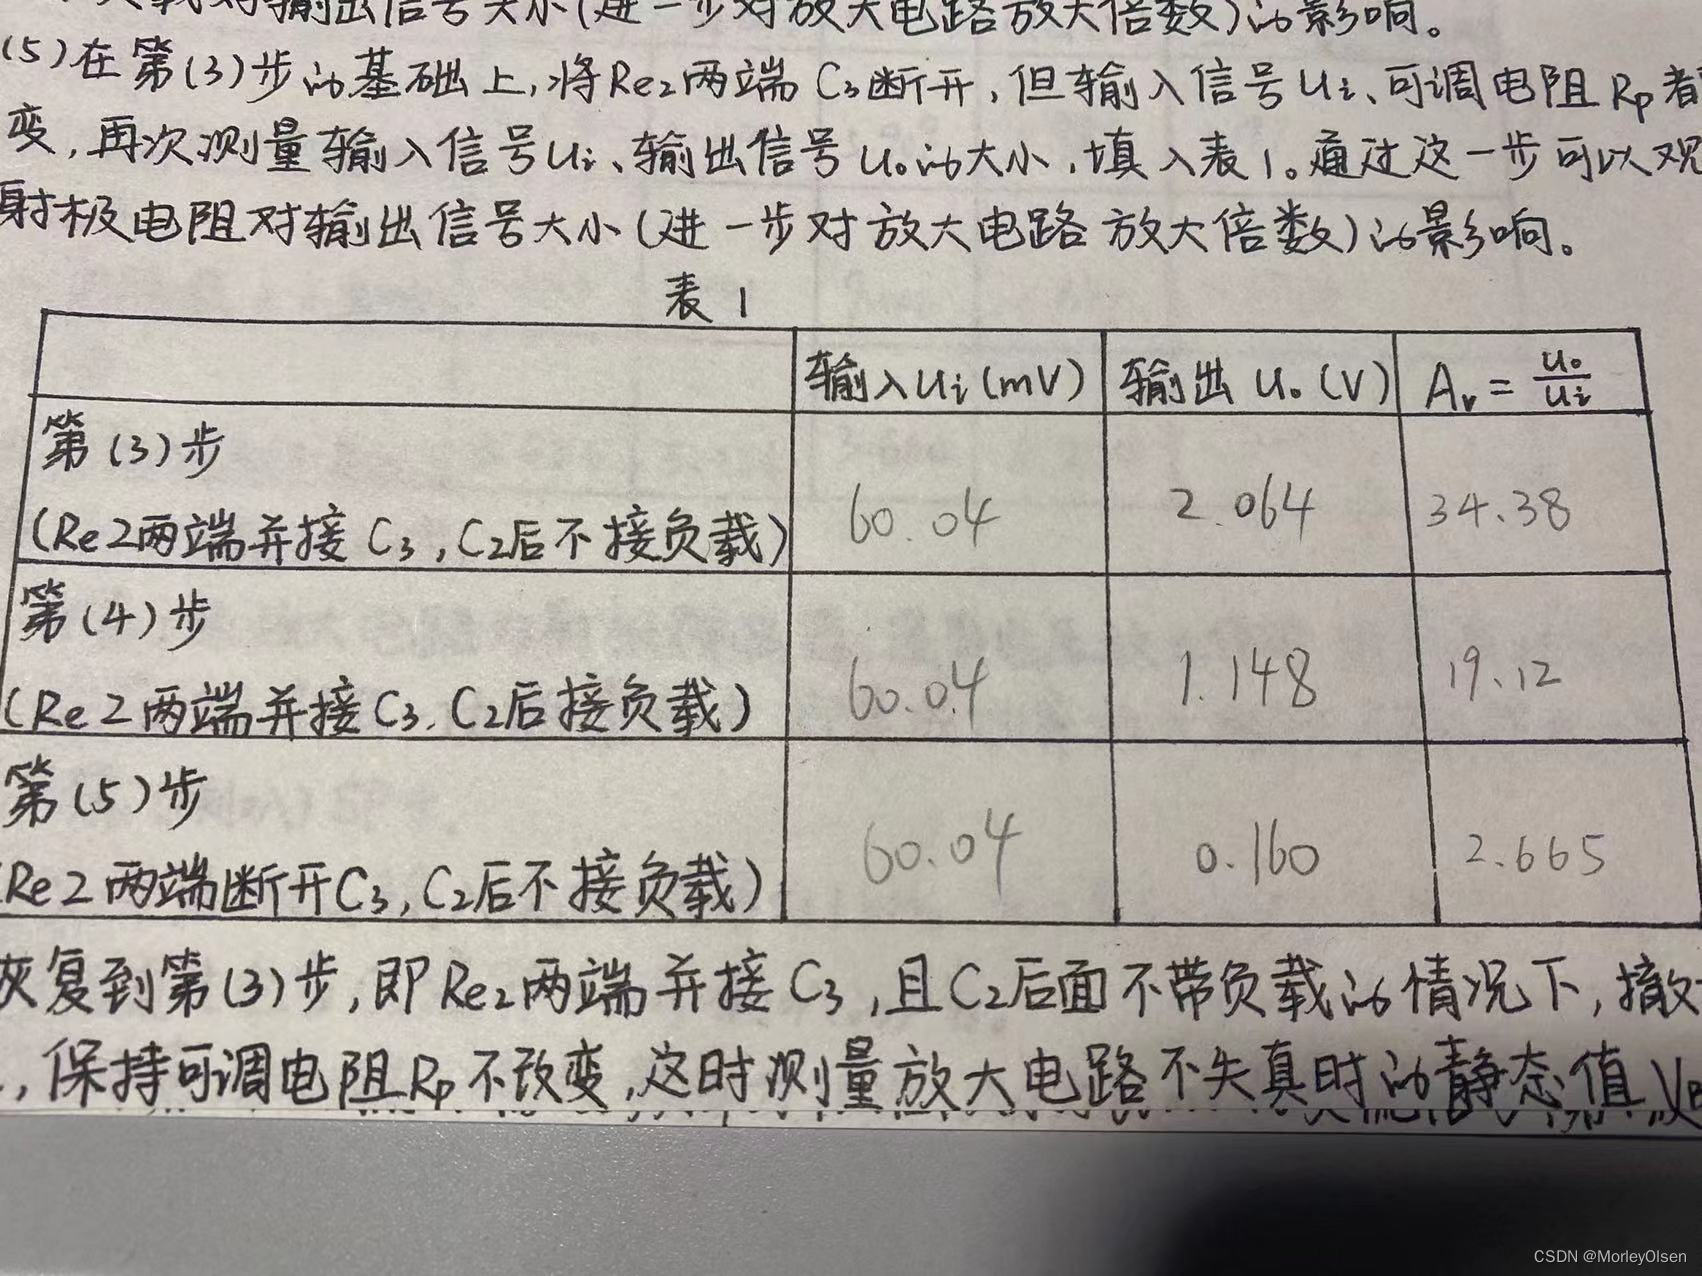 负载对输出信号大小(进一步对放大电路放大倍数)的影响。
(5)在第(3)步的基础上,将Re2两端C3断开,但输入信号Ui、可调电阻Rp都
变,再次测量输入信号Ui、输出信号Uo的大小,填入表1。通过这一步可以观
射极电阻对输出信号大小(进一步对放大电路放大倍数)的影响。
表1
输入Ui(mV) 输出Uo(V) Av=Uo/Ui
第(3)步
(Re2两端并接C3,C2后不接负载) 60.04 2.064 34.38
第(4)步
(Re2两端并接C3,C2后接负载) 60.04 1.148 19.12
第(5)步
(Re2两端断开C3,C2后不接负载) 60.04 0.160 2.665
恢复到第(3)步,即Re2两端并接C3,且C2后面不带负载的情况下,撤
,保持可调电阻Rp不改变,这时测量放大电路不失真时的静态值VB
CSDN @MorleyOlsen